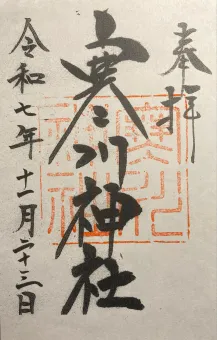 奉拝
寒川神社
令和七年十一月二十三日